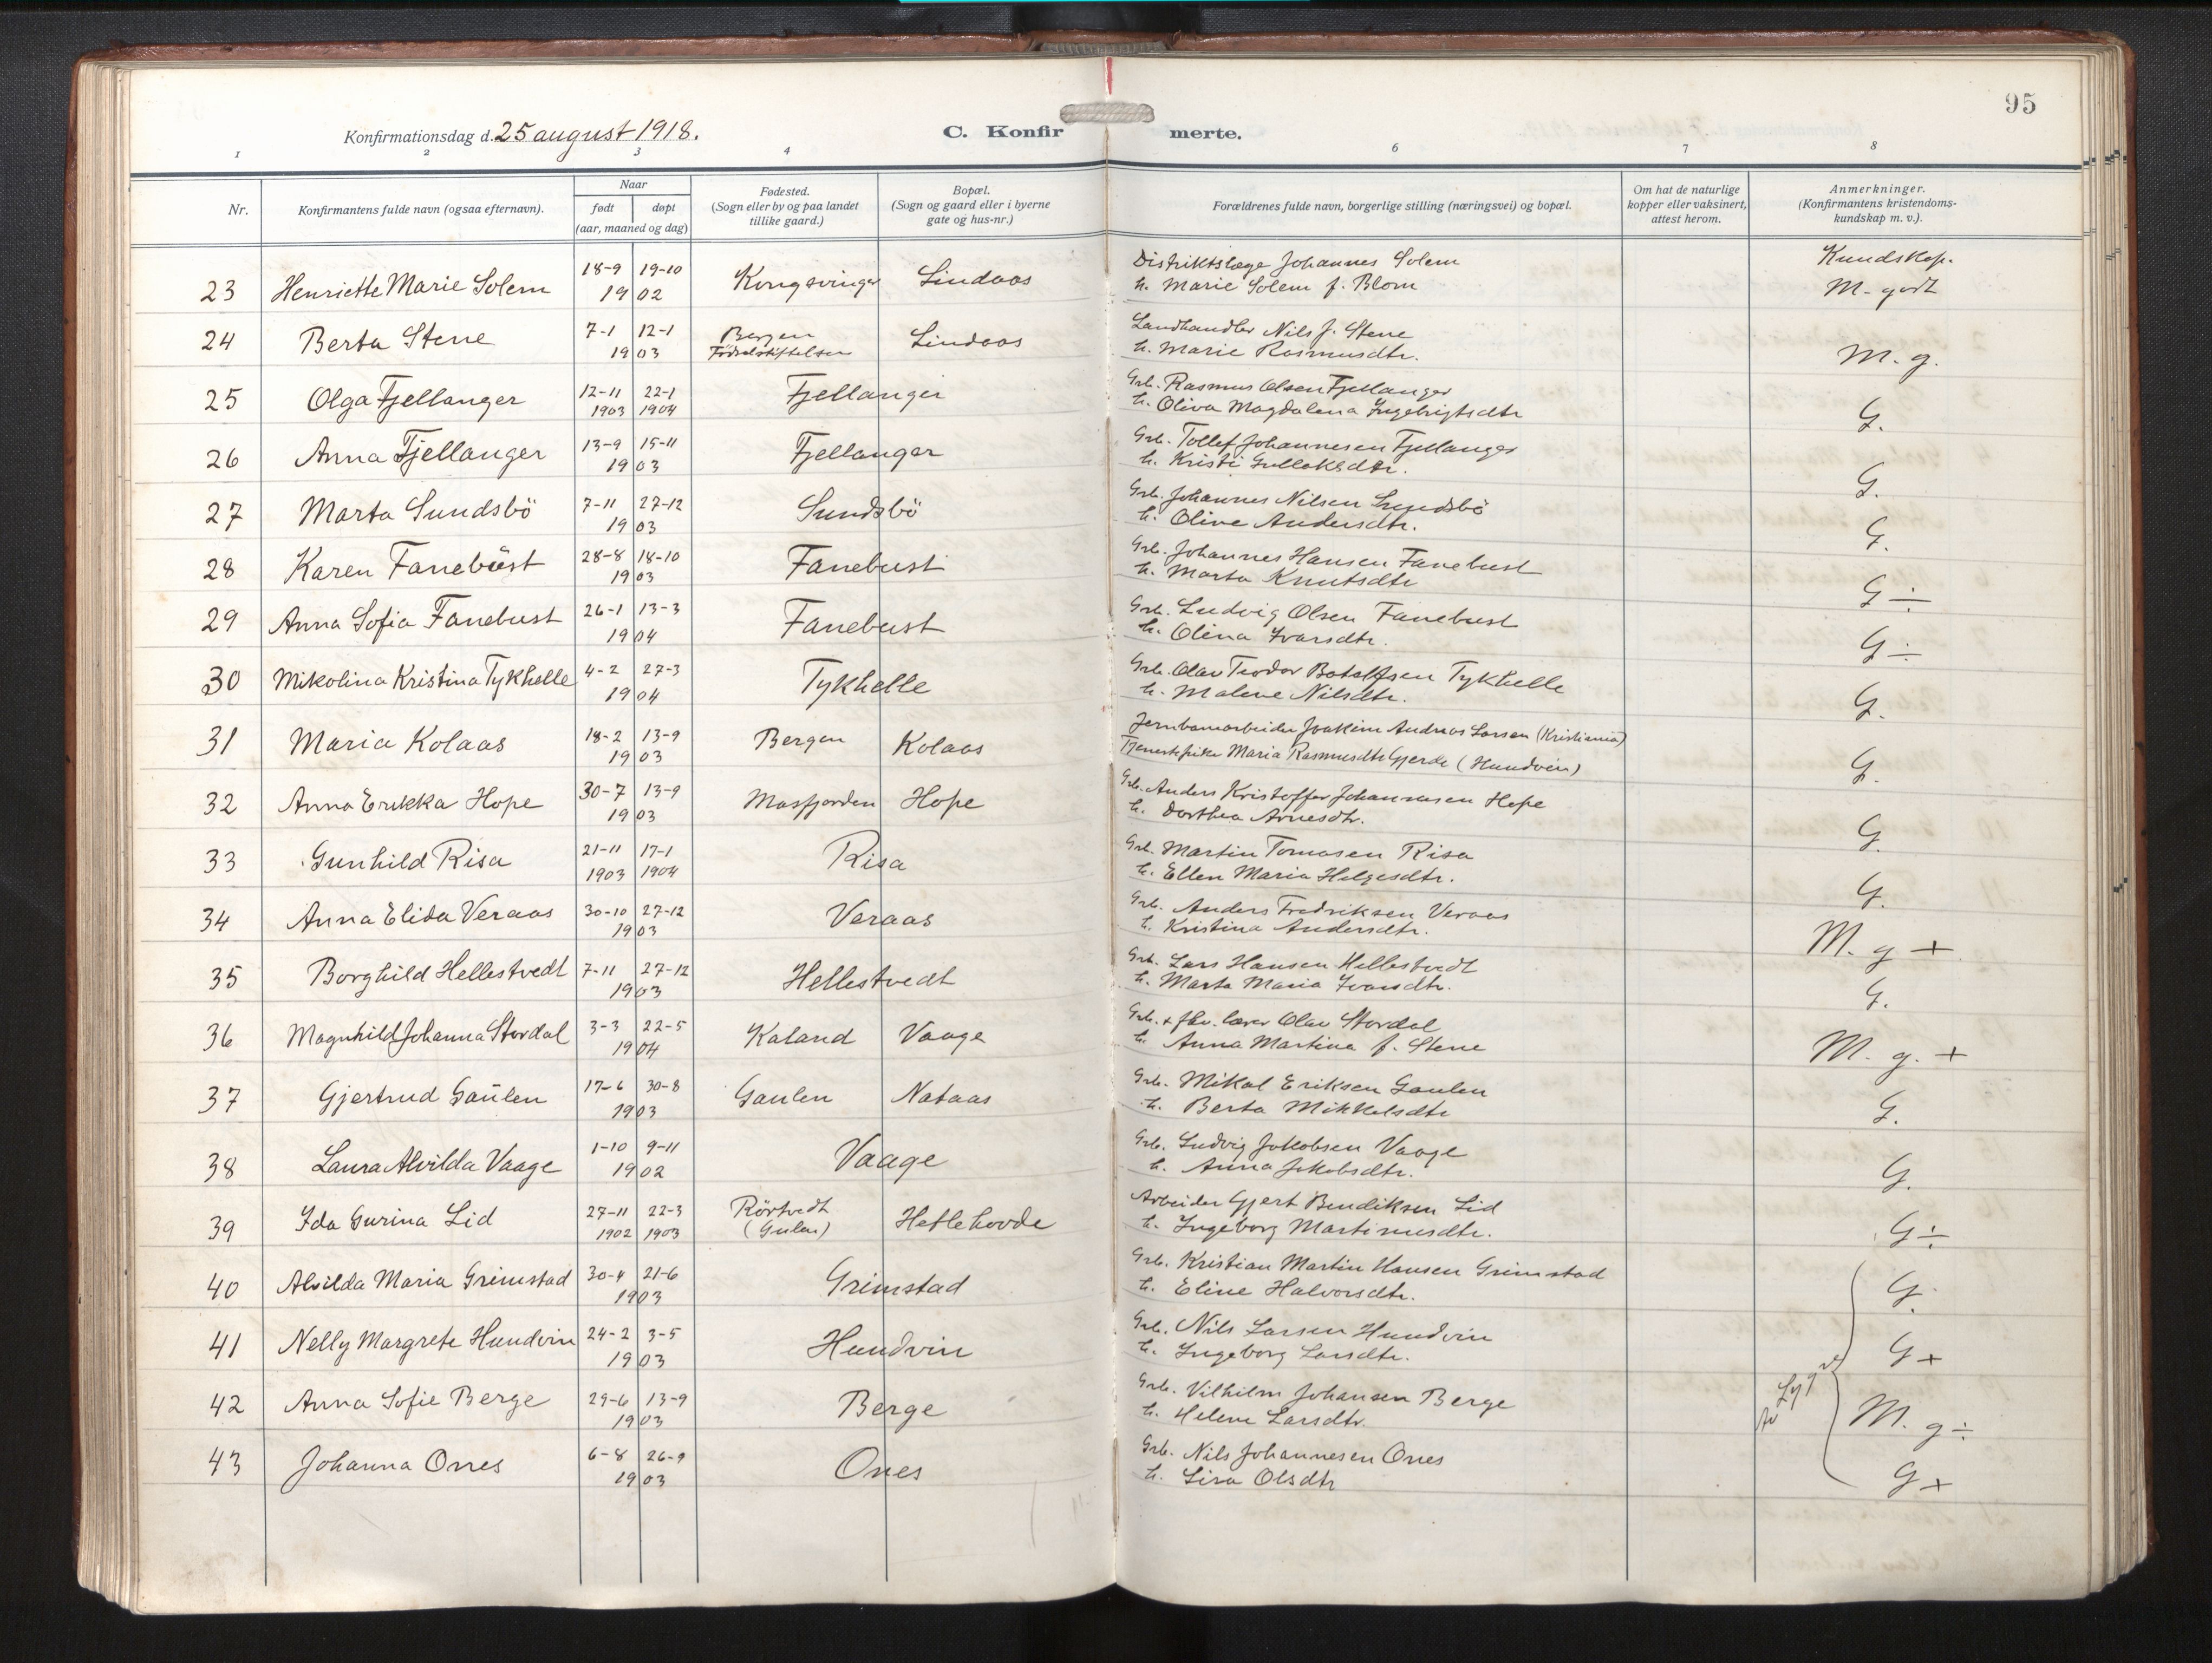 95
Konfirmationsdag d. 25 august 1918.
C. Konfirmerte.
1 2 3 4 6 7 8
Nr.
Konfirmantens fulde navn (ogsaa efternavn).
Naar
født døpt
(aar, maaned og dag)
Fødested.
(Sogn eller by og paa landet
tillike gaard.)
Bopæl.
(Sogn og gaard eller i byerne
gate og hus-nr.)
Forældrenes fulde navn, borgerlige stilling (næringsvei) og bopæl.
Om hat de naturlige
kopper eller vaksinert,
attest herom.
Anmerkninger.
(Konfirmantens kristendoms-
kundskap m. v.).
18-9 19-10 Distriktslæge Johannes Solem Kundskap.
23 Henriette Marie Solem 1902 Kongsvinger Lindaas h. Marie Solem f. Blom M- godt
7-1 12-1 Bergen Landhandler Nils J. Stene
24 Berta Stene 1903 Födselstiftelsen Lindaas h. Marie Rasmusdtr. M. g.
12-11 22-1 Grb. Rasmus Olsen Fjellanger
25 Olga Fjellanger 1903 1904 Fjellanger h. Oliva Magdalena Ingebrigtsdtr G.
13-9 15-11 Grb. Tollef Johannesen Fjellanger
26 Anna Fjellanger 1903 Fjellanger h. Kristi G.
7-11 27-12 Grb. Johannes Nilsen Sundsbö
27 Marta Sundsbö 1903 Sundsbö h. Olive Andersdtr. G.
28-8 18-10 Grb. Johannes Hansen Fanebust
28 Karen Fanebust 1903 Fanebust h. Marta Knutsdtr G ÷
26-1 13-3 Grb. Ludvig Olsen Fanebust
29 Anna Sofia Fanebust 1904 Fanebust h. Olina Ivarsdtr. G ÷
4-2 27-3 Grb. Olav Teodor Botolfsen Tykhelle
30 Mikolina Kristina Tykhelle 1904 Tykhelle h. Malene Nilsdtr. G.
18-2 13-9 Jernbanearbeider Joakim Andreas Larsen (Kristiania)
31 Maria Kolaas 1903 Bergen Kolaas Tjenestepike Maria Rasmusdtr Gjerde (Hundvin) G.
30-7 13-9 Grb. Anders Kristoffer Johannesen Hope
32 Anna Erikka Hope 1903 Masfjorden Hope h. Dorthea Arnesdtr. G.
21-11 17-1 Grb. Martin Tomasen Risa
33 Gunhild Risa 1903 1904 Risa h. Ellen Maria Helgesdtr. G.
30-10 27-12 Grb. Anders Fredriksen Veraas
34 Anna Elida Veraas 1903 Veraas h. Kristina Andersdtr. M. g +
7-11 27-12 Grb. Lars Hansen Hellestvedt
35 Borghild Hellestvedt 1903 Hellestvedt h. Marta Maria Ivarsdtr. G.
3-3 22-5 Grb. + fhv. lærer Olav Stordal
36 Magnhild Johanna Stordal 1904 Kaland Vaage h. Anna Martina f. Stene M. g. +
17-6 30-8 Grb. Mikal Eriksen Gaulen
37 Gjertrud Gaulen 1903 Gaulen Nataas h. Berta Mikkelsdtr G.
1-10 9-11 Grb. Ludvig Jakobsen Vaage
38 Laura Alvilda Vaage 1902 Vaage h. Anna Jakobsdtr. G.
27-11 22-3 Rörtvedt Arbeider Gjert Bendiksen Lid
39 Ida Gurina Lid 1902 1903 (Gulen) Hetlehovde h. Ingeborg Martinusdtr. G ÷
30-4 21-6 Grb. Kristian Martin Hansen Grimstad
40 Alvilda Maria Grimstad 1903 Grimstad h. Eline Halvorsdtr. G.
24-2 3-5 Grb. Nils Larsen Hundvin
41 Nelly Margrete Hundvin 1903 Hundvin h. Ingeborg Larsdtr. G +
29-6 13-9 Grb. Vilhelm Johansen Berge
42 Anna Sofie Berge 1903 Berge h. Helene Larsdtr. M. g ÷
6-8 26-9 Grb. Nils Johannesen Ones
43 Johanna Ones 1903 Ones h. Lisa Olsdtr G +